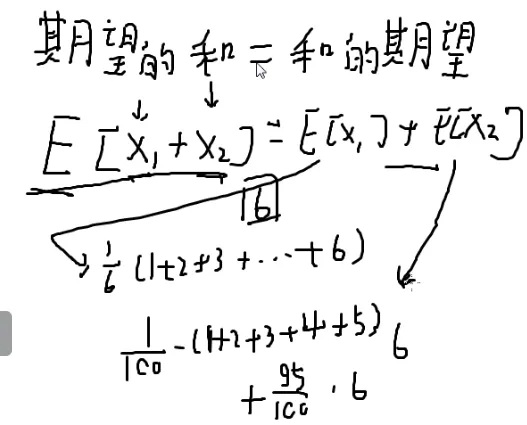 期望的和=和的期望
E[X₁+X₂]=E[X₁]+E[X₂]
16
1/6(1+2+3+...+6)
1/100-(1+2+3+4+5) 6
+95/100·6